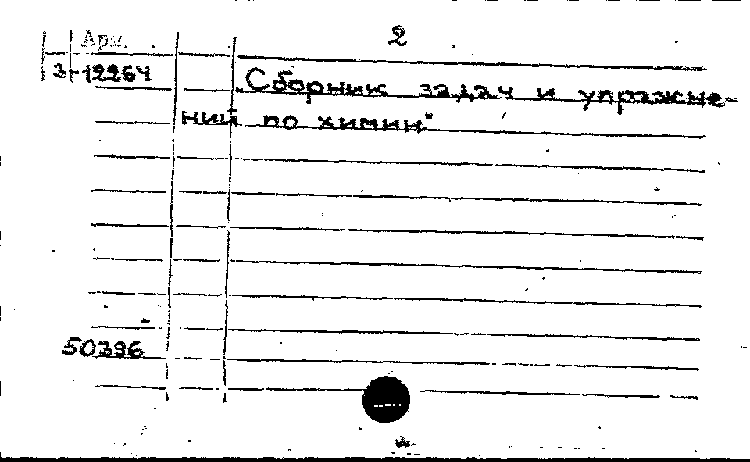 2
Арм.
З-12264
Сборник задач и упражне-
ний по химии"
50396